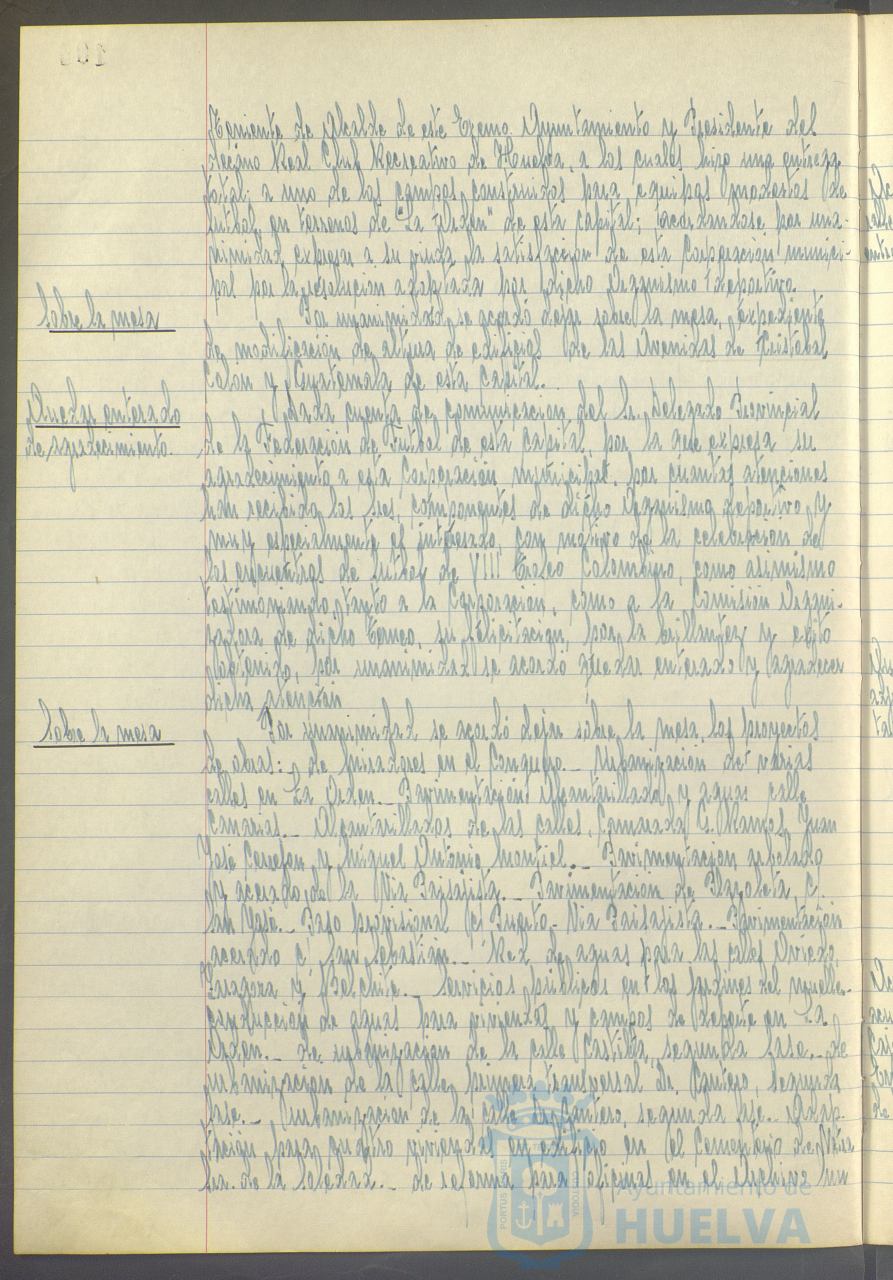 Teniente de Alcalde de este Excmo. Ayuntamiento y Presidente del
decano Real Club Recreativo de Huelva, a los cuales hizo una entrega
total; a uno de los campos construidos para equipos modestos de
futbol, en terrenos de "La Orden" de esta capital; acordandose por una-
nimidad expresar a su viuda la satisfacion de esta Corporación munici-
pal por la resolucion adoptada por dicho Organismo deportivo.
Sobre la mesa
Por unanimidad, se acordó dejar sobre la mesa, expediente
de modificación de altura de edificios de las Avenidas de Cristobal
Colon y Guatemala de esta capital.
Quedar enterado
de agradecimiento.
Dada cuenta de comunicacion del Sr. Delegado Provincial
de la Federación de Futbol de esta capital, por la que expresa su
agradecimiento a esta Corporación municipal, por cuantas atenciones
han recibido los tres componentes de dicho Organismo deportivo y
muy especialmente el interesado, con motivo de la celebracion de
los encuentros de futbol de VIII Trofeo Colombino, como asimismo
testimoniando, tanto a la Corporación, como a la Comisión Organi-
zadora de dicho Torneo, su felicitacion, por la brillantez y exito
obtenido, por unanimidad se acordó quedar enterado y agradecer
dicha atencion
Sobre la mesa
Por unanimidad se acordó dejar sobre la mesa, los proyectos
de obras: de Miradores en el Conquero.- Urbanizacion de varias
calles en La Orden.- Pavimentación, Alcantarillado y aguas calle
Canarias.- Alcantarillados de las calles, Camarada C. Ramos, Juan
José y Miguel Antonio Montiel.- Pavimentacion arbolado
y acerado, de la Via Paisajista.- Pavimentacion de Plazoleta, C.
San José.- Paso provisional Puerto-Via Paisajista.- Pavimentación
acerado c. San Sebastián.- Red de aguas para las calles Oviedo,
Zaragoza y Belchite.- Servicios publicos en los jardines del muelle.-
Conduccion de aguas para viviendas y campos de deporte en La
Orden.- de urbanizacion de la calle Castilla, segunda fase.- de
urbanizacion de la calle primera transversal de Cantero, segunda
fase.- Urbanizacion de la calle Cantero, segunda fase.- Adap-
tación para cuatro viviendas en edificio en el Cementerio de Ntra
Sra. de la Soledad.- de reforma para oficinas en el Archivo Mu
Ayuntamiento de
HUELVA